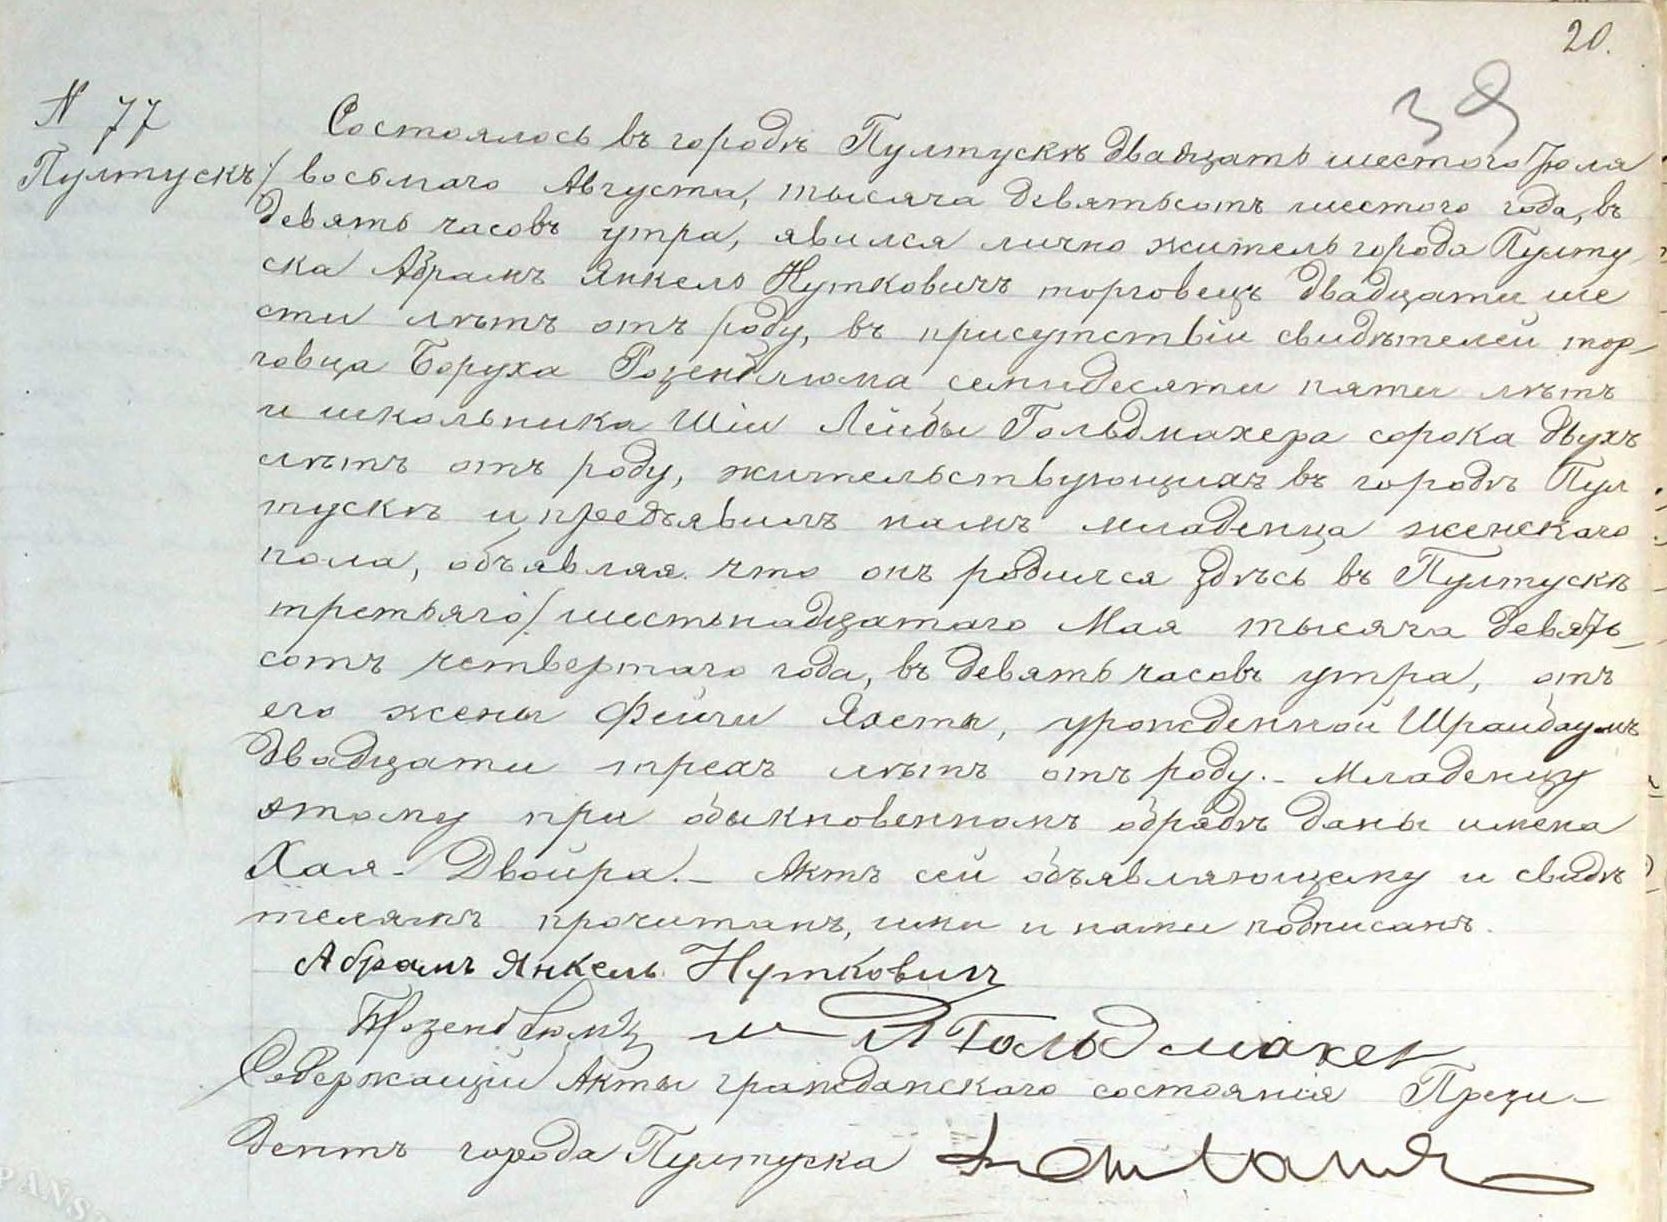 20.
39
N 77
Пултускъ/
Состоялось въ городѣ Пултускѣ двадцать шестого Іюля
восьмого Августа, тысяча девятьсотъ шестого года, въ
девять часовъ утра, явился лично житель города Пулту-
ска Абрамъ Янкель Нутковичъ торговецъ двадцати ше
сти лѣтъ отъ роду, въ присутствіи свидѣтелей тор-
говца Боруха Розенблюма семидесяти пяти лѣтъ
и школьника Шіи Лейбы Гольдмахера сорока двухъ
лѣтъ отъ роду, жительствующихъ въ городѣ Пул
тускѣ и предъявилъ намъ младенца женскаго
пола, объявляя что онъ родился здѣсь въ Пултускѣ
третьяго/шестьнадцатаго Мая тысяча девять-
сотъ четвертаго года, въ девять часовъ утра, отъ
его жены Фейги Яхеты, урожденной Шрайбаумъ
двадцати трехъ лѣтъ отъ роду.- Младенцу
этому при обыкновенномъ обрядѣ даны имена
Хая- Двойра.- Актъ сей объявляющему и свидѣ
телямъ прочитанъ, ими и нами подписанъ.
Абрамъ Янкель Нуткович
Розенблюмъ Гольдмахер
Содержащій Акты гражданскаго состоянія Прези-
дентъ города Пултуска
PAŃS